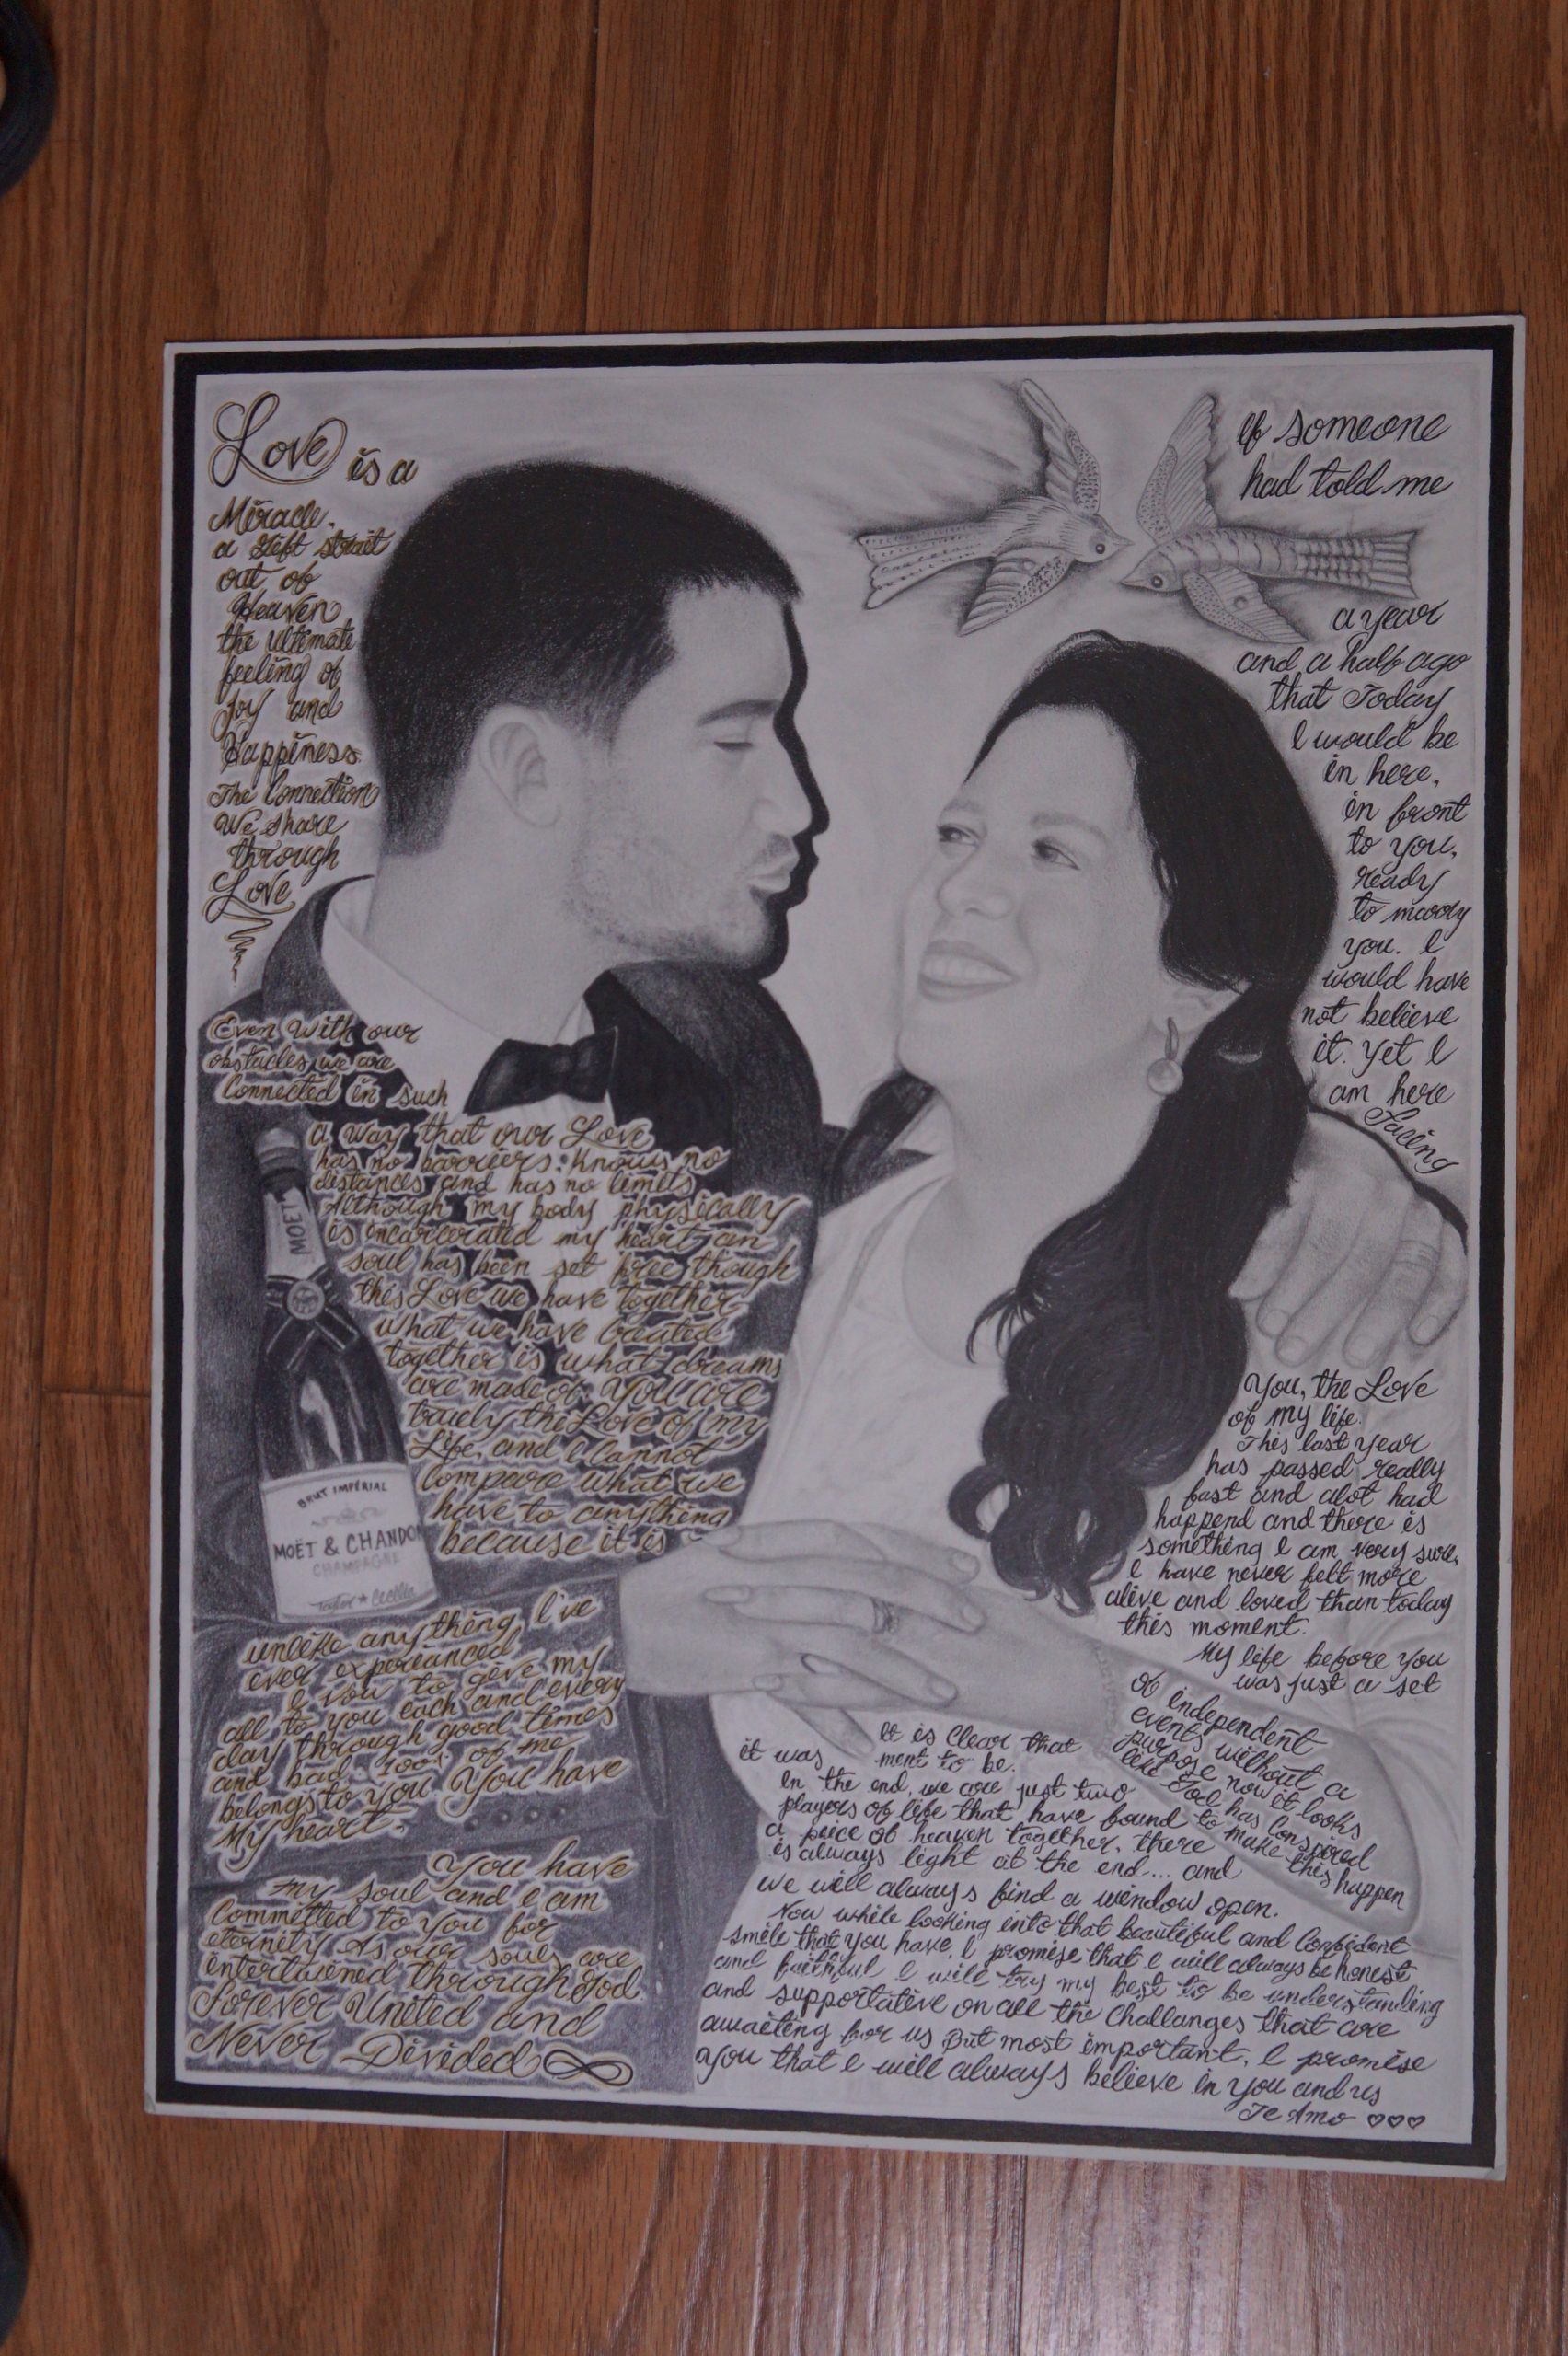 Love is a
Miracle.
a Gift strait
out of
Heaven
the ultimate
feeling of
Joy and
Happiness.
The Connection
We share
through
Love
Even with our
obstacles, we are
Connected in such
a way that our Love
has no barriers: Knows no
distances and has no limits
Although my body physically
is incarcerated my heart an
soul has been set free though
this Love we have together
what we have created
together is what dreams
are made of. You are
truely the Love of my
Life, and I Cannot
Compare what we
have to anything
because it is
MOET
BRUT IMPÉRIAL
MOËT & CHANDON
CHAMPAGNE
unlike anything I've
ever experianced
I vow to give my
all to you each and every
day through good times
and bad. 100% of me
belongs to you. You have
My heart.
You have
my soul and I am
Committed to you for
eternity As our souls are
intertwined through God
Forever United and
Never Divided
If someone
had told me
a year
and a half ago
that Today
I would be
in here,
in front
to you,
ready
to marry
you. I
would have
not believe
it. Yet I
am here
Facing
You, the Love
of my life.
This last year
has passed really
fast and alot had
happend and there is
something I am very sure,
I have never felt more
alive and loved than today
this moment.
My life before you
was just a set
of independent
events without a
purpose now it looks
like God has Conspired
to make this happen
It is Clear that
it was ment to be.
In the end, we are just two
players of life that have found
a peice of heaven together. there
is always light at the end.... and
we will always find a window open.
Now while looking into that beautiful and Confident
smile that you have, I promise that I will always be honest
and faithful I will try my best to be understanding
and supportative on all the Challanges that are
awaiting for us But most important, I promise
you that I will always believe in you and us
Te Amo ♡♡♡